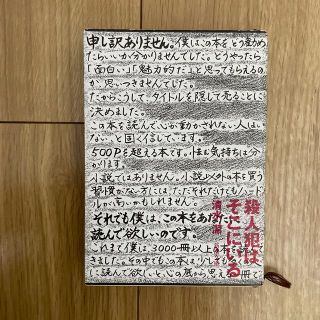 申し訳ありません。僕はこの本をどう勧め
たらいいか分かりませんでした。どうやったら
「面白い」「魅力的だ」と思ってもらえるのか、
思いつきませんでした。
だからこうして、タイトルを隠して売ることに
決めました。
この本を読んで心が動かされない人はい
ない、と固く信じています。
500Pを超える本です。怯む気持ちは分
かります。
小説ではありません。小説以外の本を買う
習慣がない方には、ただそれだけでもハード
ルが高いかもしれません。
それでも僕は、この本をあなたに
読んで欲しいのです。
これまで僕は3000冊以上
きました。その中でもこの本は
に読んで欲しい、と心の底から思える一冊で
殺人犯は
そこにいる
清水潔